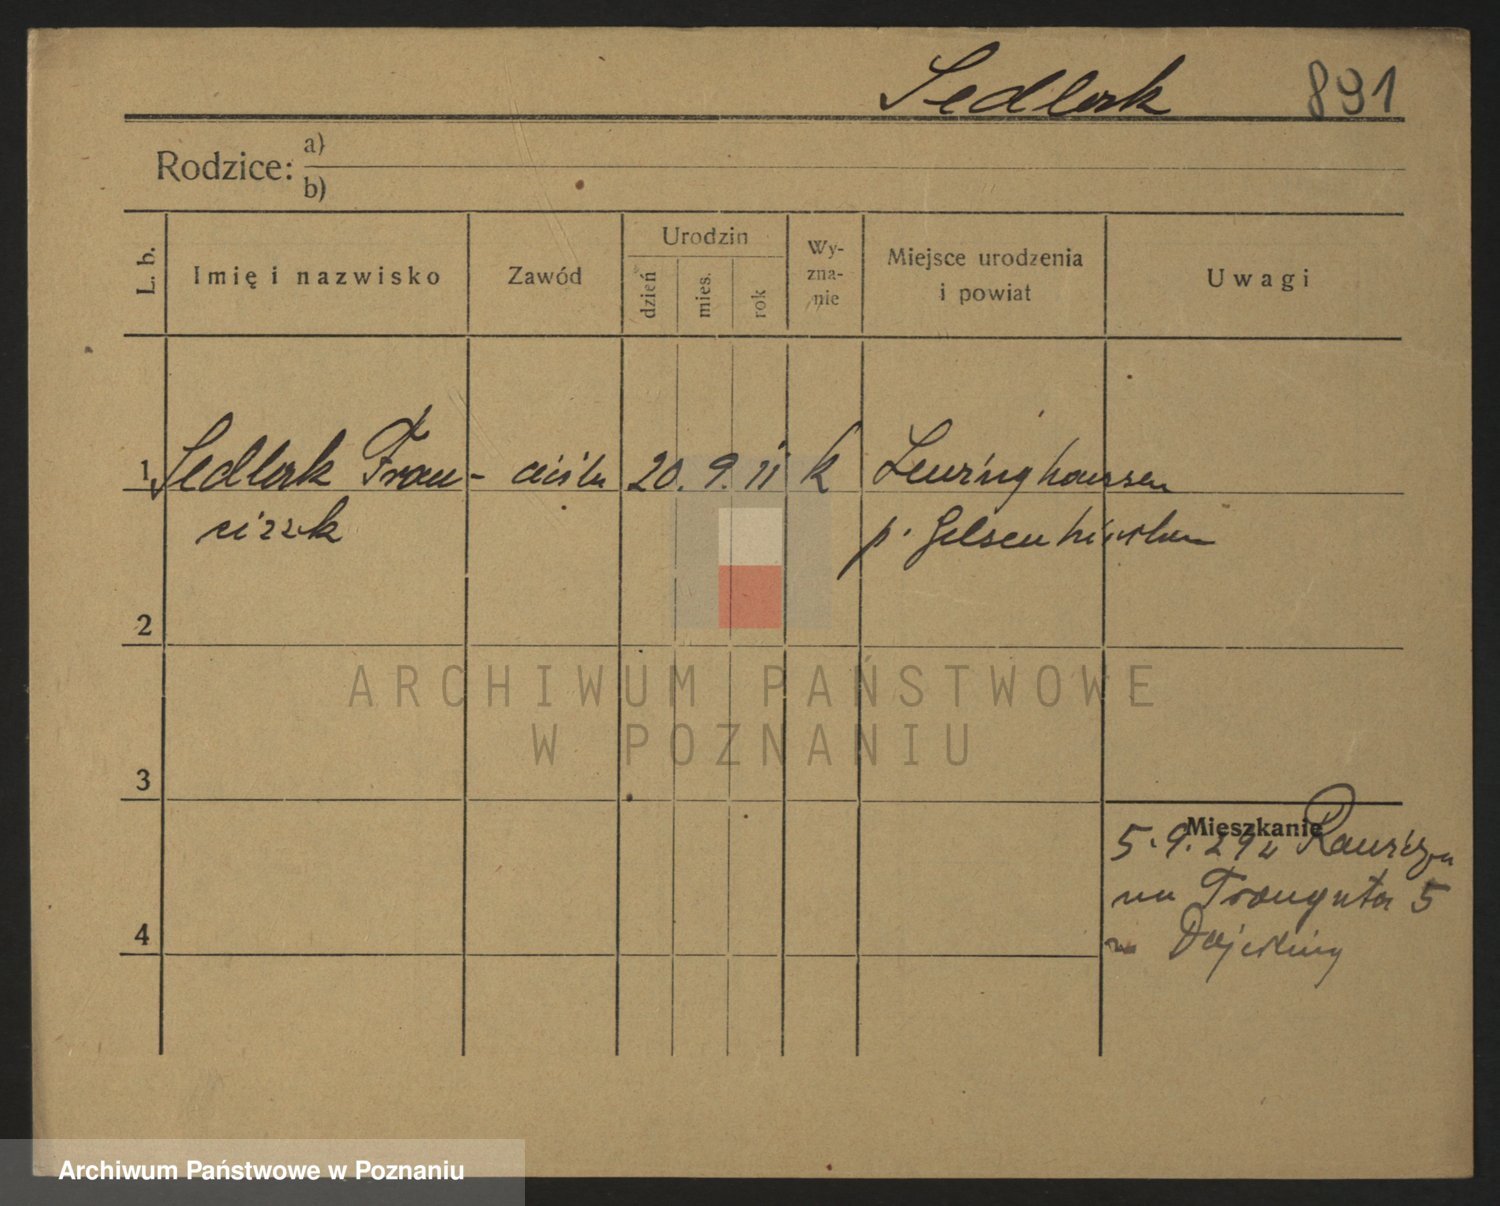 Sedlak 891
Rodzice: a)
b)
L. b. Imię i nazwisko Zawód Urodzin dzień mies. rok Wy-zna-nie Miejsce urodzenia i powiat Uwagi
1 Sedlak Fran- cieśla 20. 9. 11 k
ciszek p. Gelsenkirchen
2
ARCHIWUM PAŃSTWOWE
W POZNANIU
3
Mieszkanie
5.9.29 z
na Traugutta 5
4
Archiwum Państwowe w Poznaniu